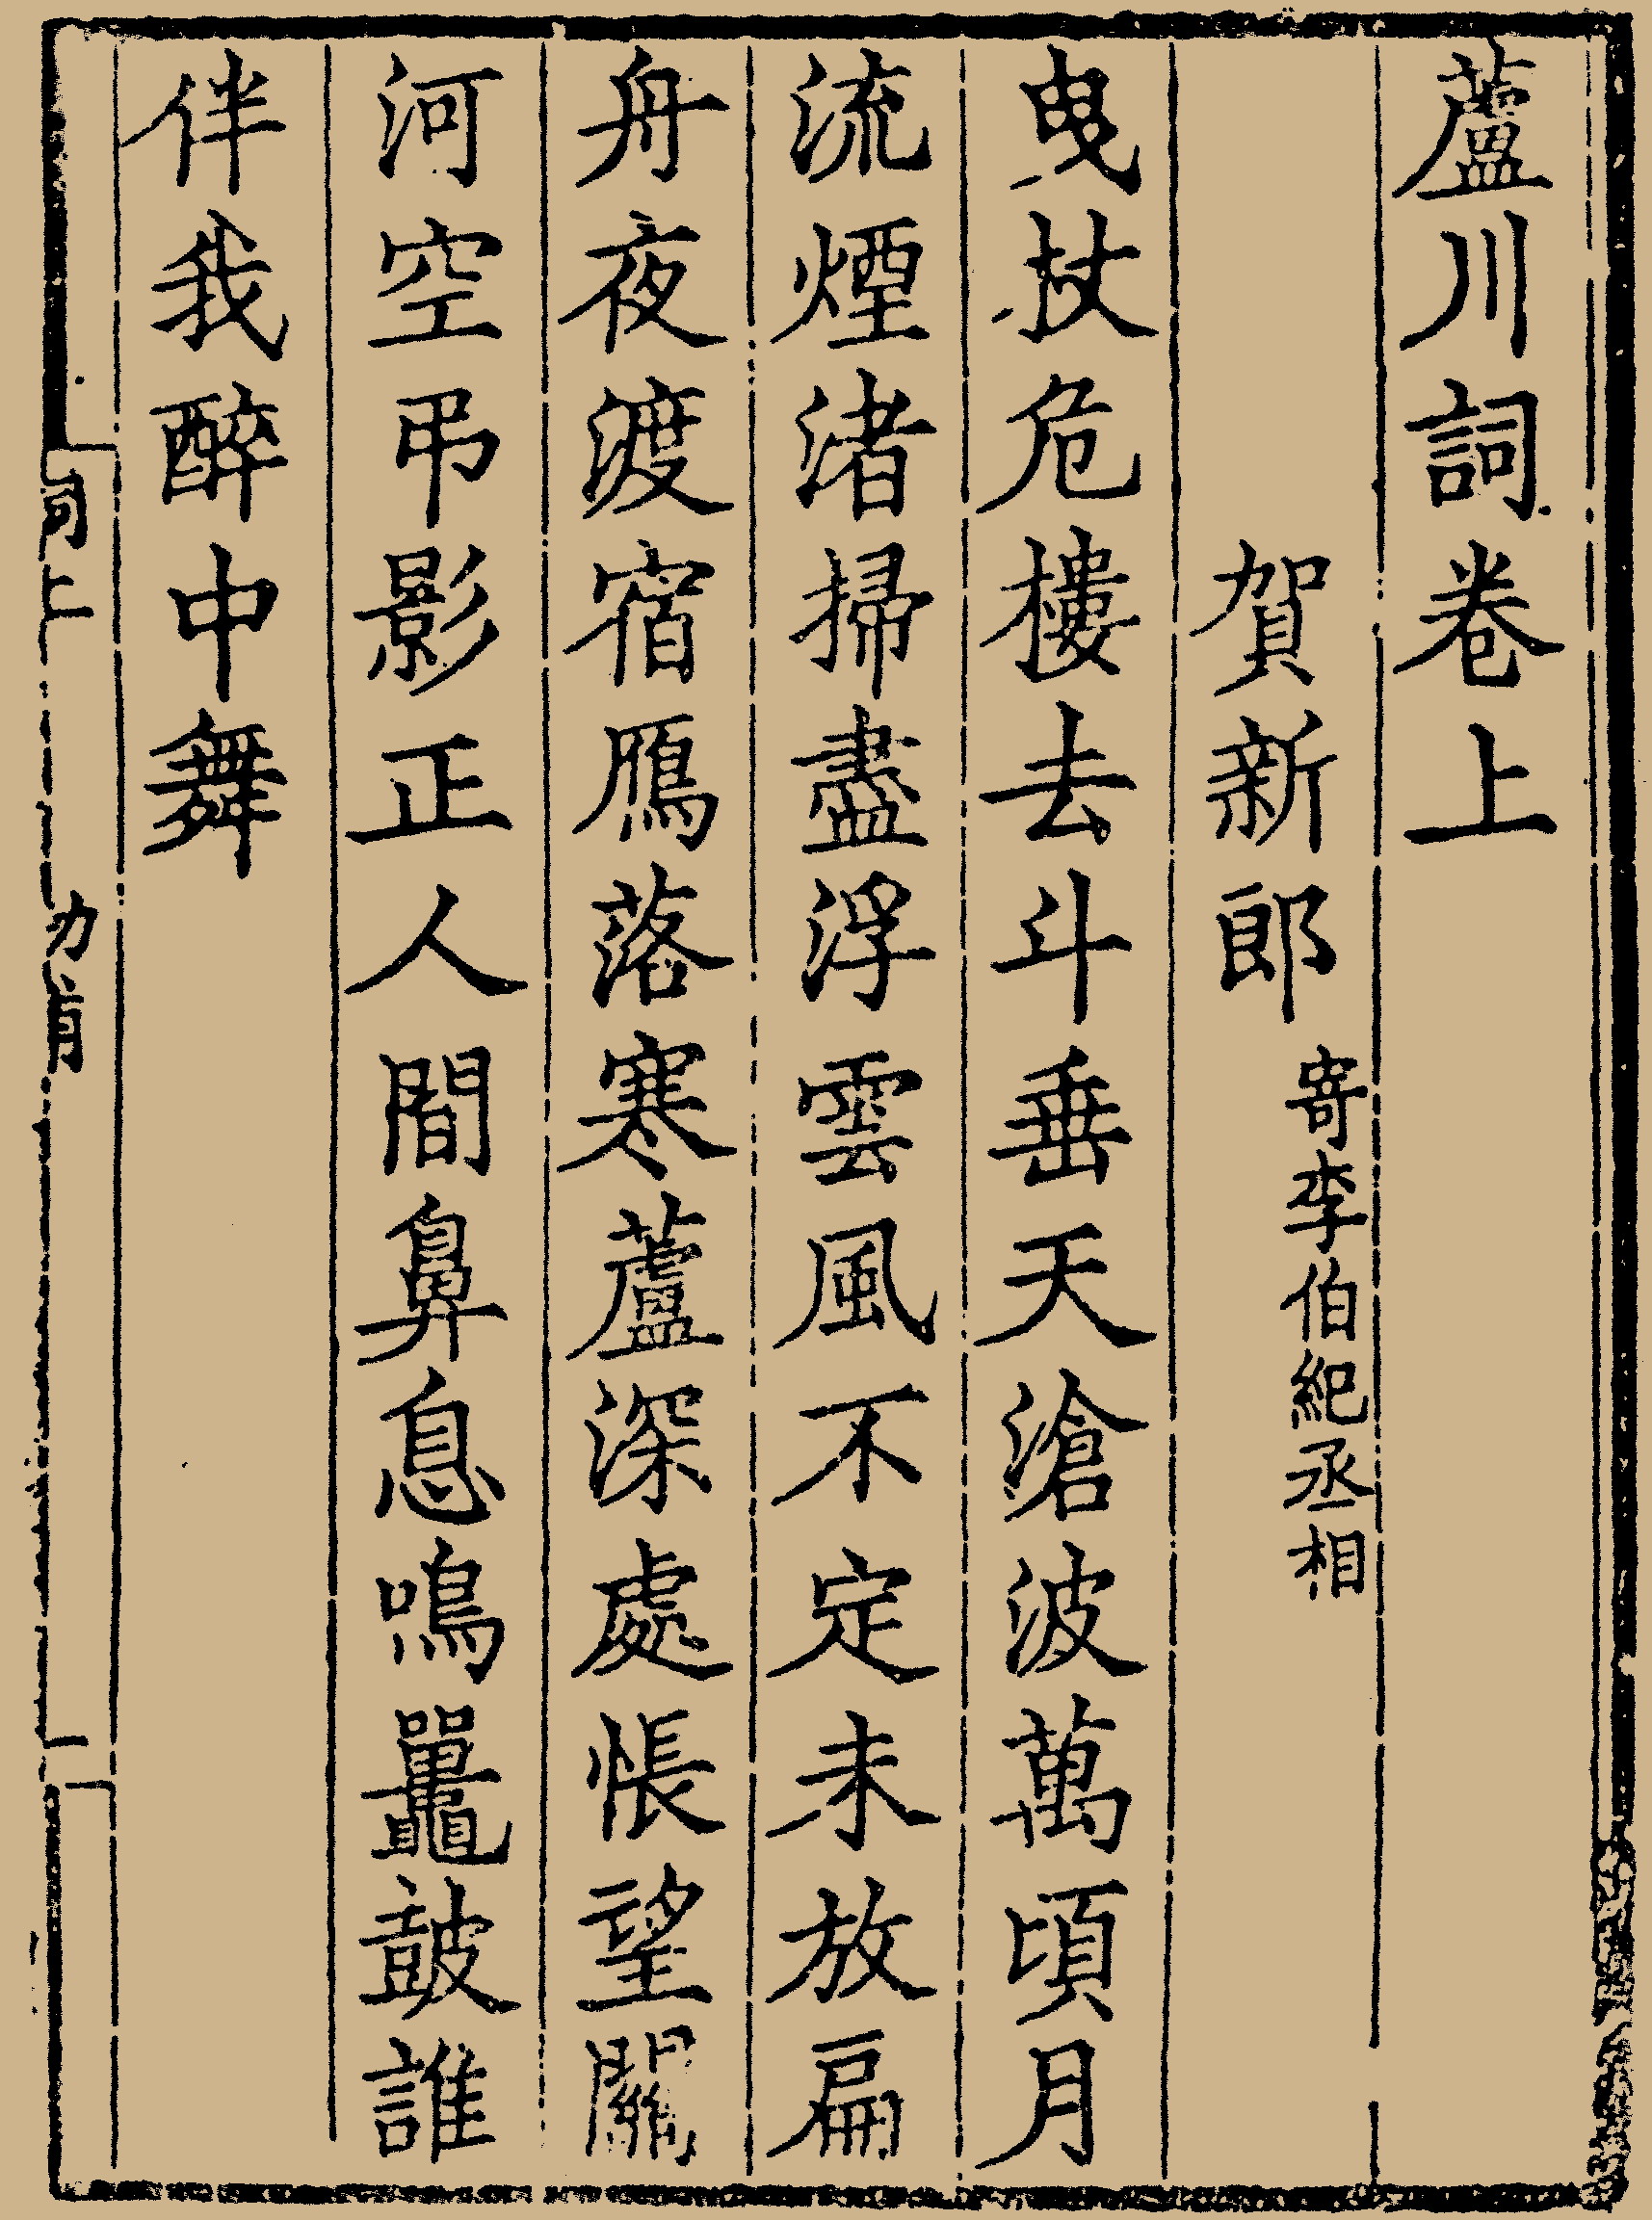 蘆川詞卷上
賀新郎 寄李伯紀丞相
曵杖危樓去斗垂天滄波萬頃月
流煙渚掃盡浮雲風不定未放扁
舟夜渡宿鴈落寒蘆深處悵望關
河空弔影正人間鼻息鳴鼉皷誰
伴我醉中舞
詞上
一